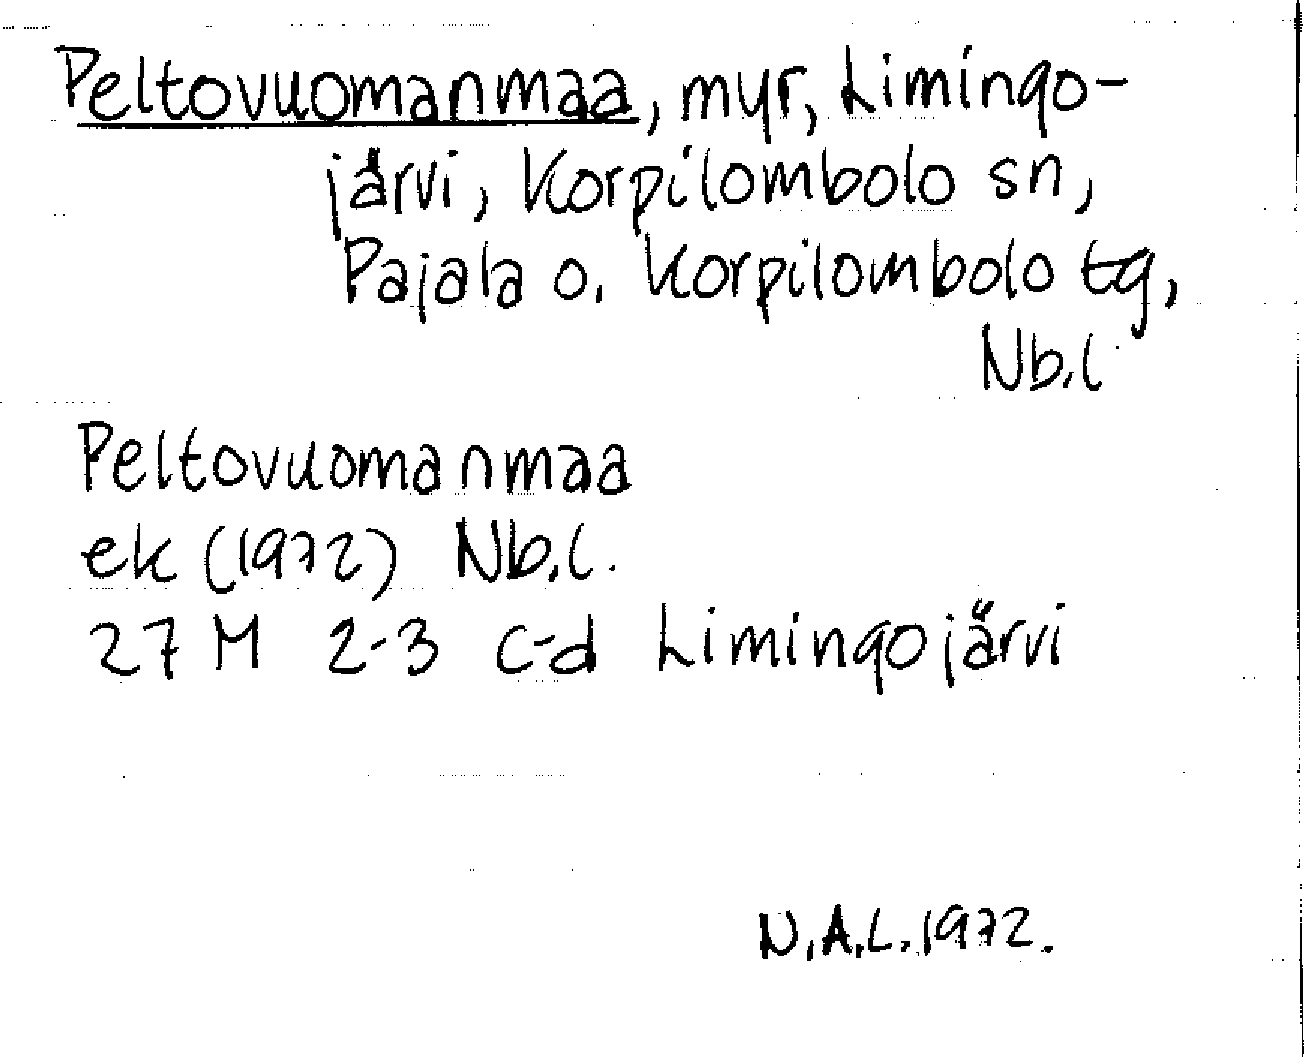 Peltovuomanmaa, myr, Limingo-
järvi, Korpilombolo sn,
Pajala o. Korpilombolo tg,
Nb.l
Peltovuomanmaa
ek (1972) Nb.l.
27 M 2-3 c-d Limingojärvi
N.A.L. 1972.